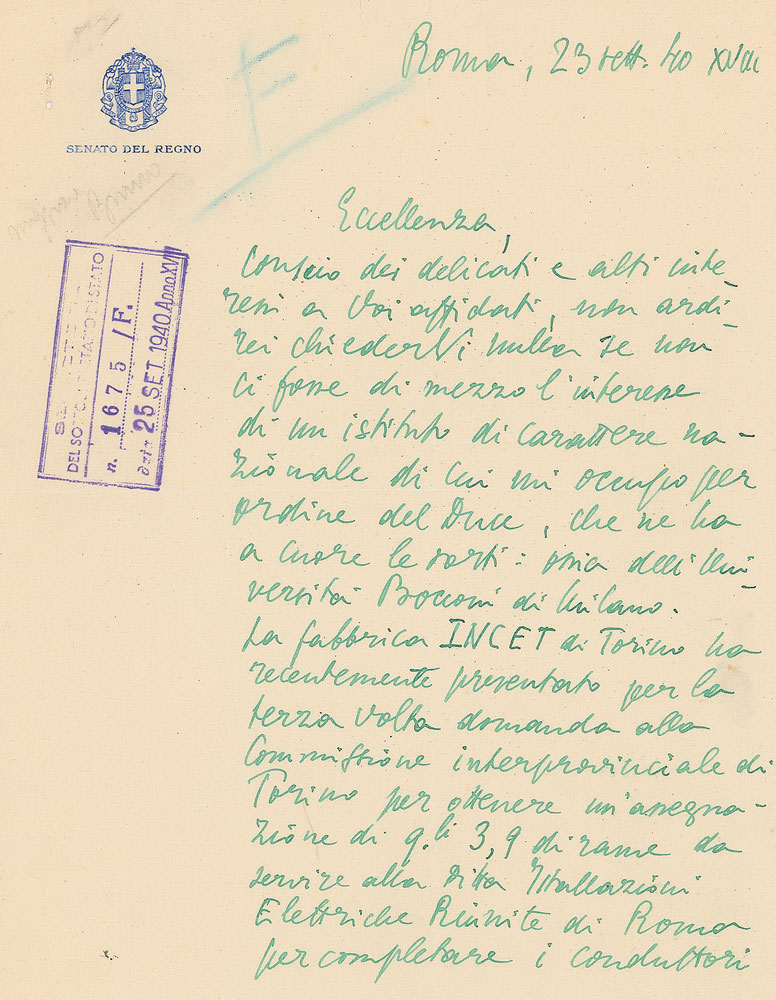 Roma, 23 sett. 40 XVIII
F
SENATO DEL REGNO
DEL SOTTOSEGRETARIO DI STATO
n. 1675 /F.
data 25 SET. 1940 Anno XVIII
Eccellenza,
conscio dei delicati e alti inte-
ressi a Voi affidati, non ardi-
rei chiederVi nulla se non
ci fosse di mezzo l'interesse
di un istituto di carattere na-
zionale di cui mi occupo per
ordine del Duce, che ne ha
a cuore le sorti: ossia dell'Uni-
versità Bocconi di Milano.
La fabbrica INCET di Torino ha
recentemente presentato per la
terza volta domanda alla
Commissione interprovinciale di
Torino per ottenere un'assegna-
zione di q.li 3,9 di rame da
servire alla ditta Istallazioni
Elettriche Riunite di Roma
per completare i conduttori